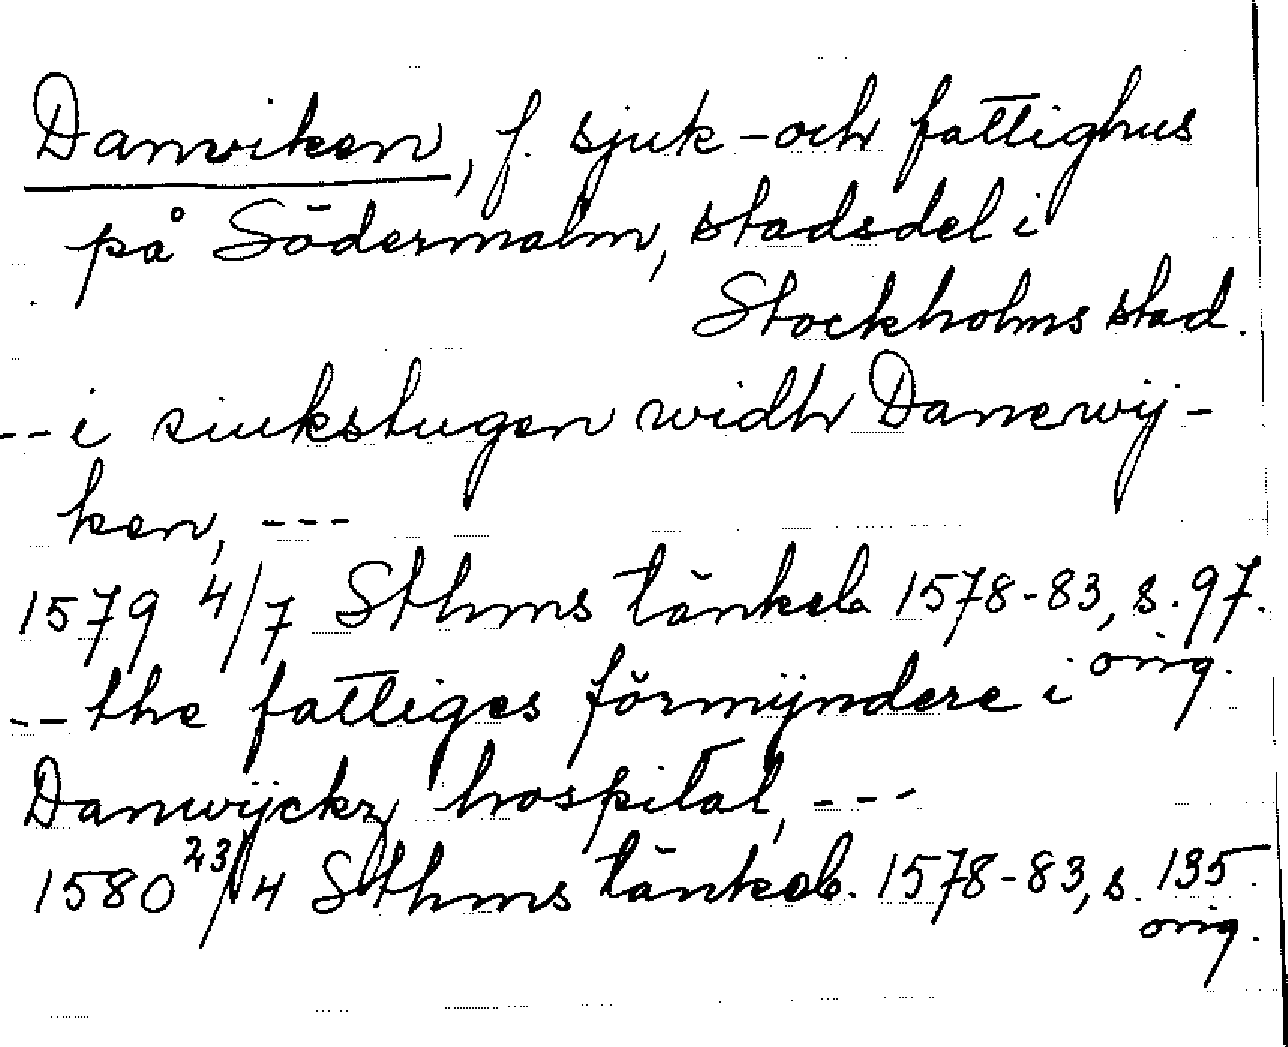 Danviken, f. sjuk- och fattighus
på Södermalm, stadsdel i
Stockholms stad.
-- i siukstugen widh Danewij-
ken, ---
1579 4/7 Sthms tänkeb. 1578-83, s. 97.
orig.
-- the fattiges förmÿndere i
Danwijckz hospital, ---
1580 23/4 Sthms tänkeb. 1578-83, s. 135.
orig.